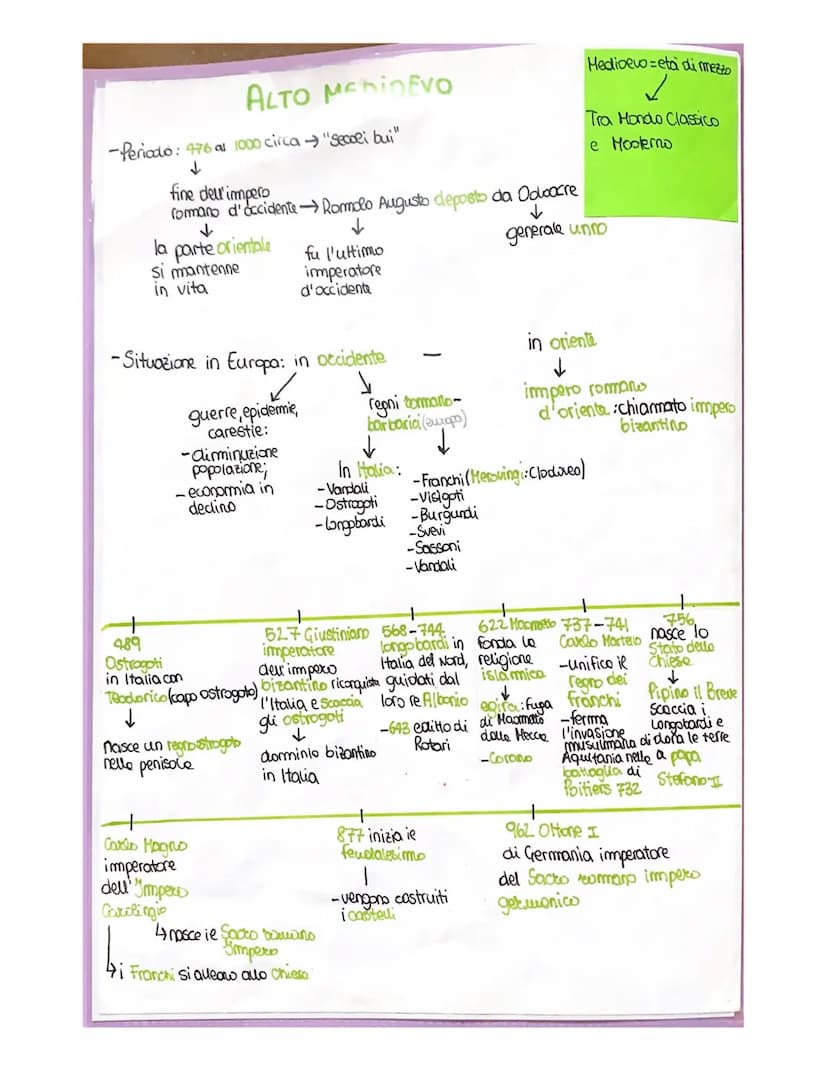 ALTO MEDIOEVO
Medioevo = età di mezzo
Tra Mondo Classico
e Moderno
- Periodo: 476 al 1000 circa → "secoli bui"
fine dell'impero
romano d'occidente → Romolo Augusto deposto da Odoacre
generale unno
la parte orientale
si mantenne
in vita
fu l'ultimo
imperatore
d'occidente
- Situazione in Europa: in occidente —
in oriente
impero romano
d'oriente: chiarmato impero
bizantino
guerre, epidemie,
carestie:
- dirminuzione
popolazione;
- economia in
declino
regni romano-
barbarici (europa)
In Italia:
- Vandali
- Ostrogoti
- Longobardi
- Franchi (Merovingi: Clodoveo)
- Visigoti
- Burgundi
- Svevi
- Sassoni
- Vandali
489
Ostrogoti
in Italia con
Teodorico (capo ostrogoto)
nasce un regno ostrogoto
nella penisola
527 Giustiniano
imperatore
dell'impero
bizantino riconquista
l'Italia e scaccia
gli ostrogoti
dorminio bizantino
in Italia
568-744
longobardi in
Italia del Nord,
guidati dal
loro re Alboino
- 643 editto di
Rotari
622 Maometto
fonda la
religione
islamica
egira: fuga
di Maometto
dalla Mecca
- Corano
737-741
Carlo Martello
- unifico il
regno dei
franchi
- ferma
l'invasione
musulmana di
Aquitania nella
battaglia di
Poitiers 732
756
nasce lo
Stato della
Chiesa
Pipino il Breve
scaccia i
Longobardi e
dona le terre
a papa
Stefano II
Carlo Magno
imperatore
dell'Impero
Carolingio
↳ nasce il Sacro romano
Impero
↳ i Franchi si alleano alla Chiesa
877 inizia il
feudalesimo
- vengono costruiti
i castelli
962 Ottone I
di Germania imperatore
del Sacro romano impero
germanico